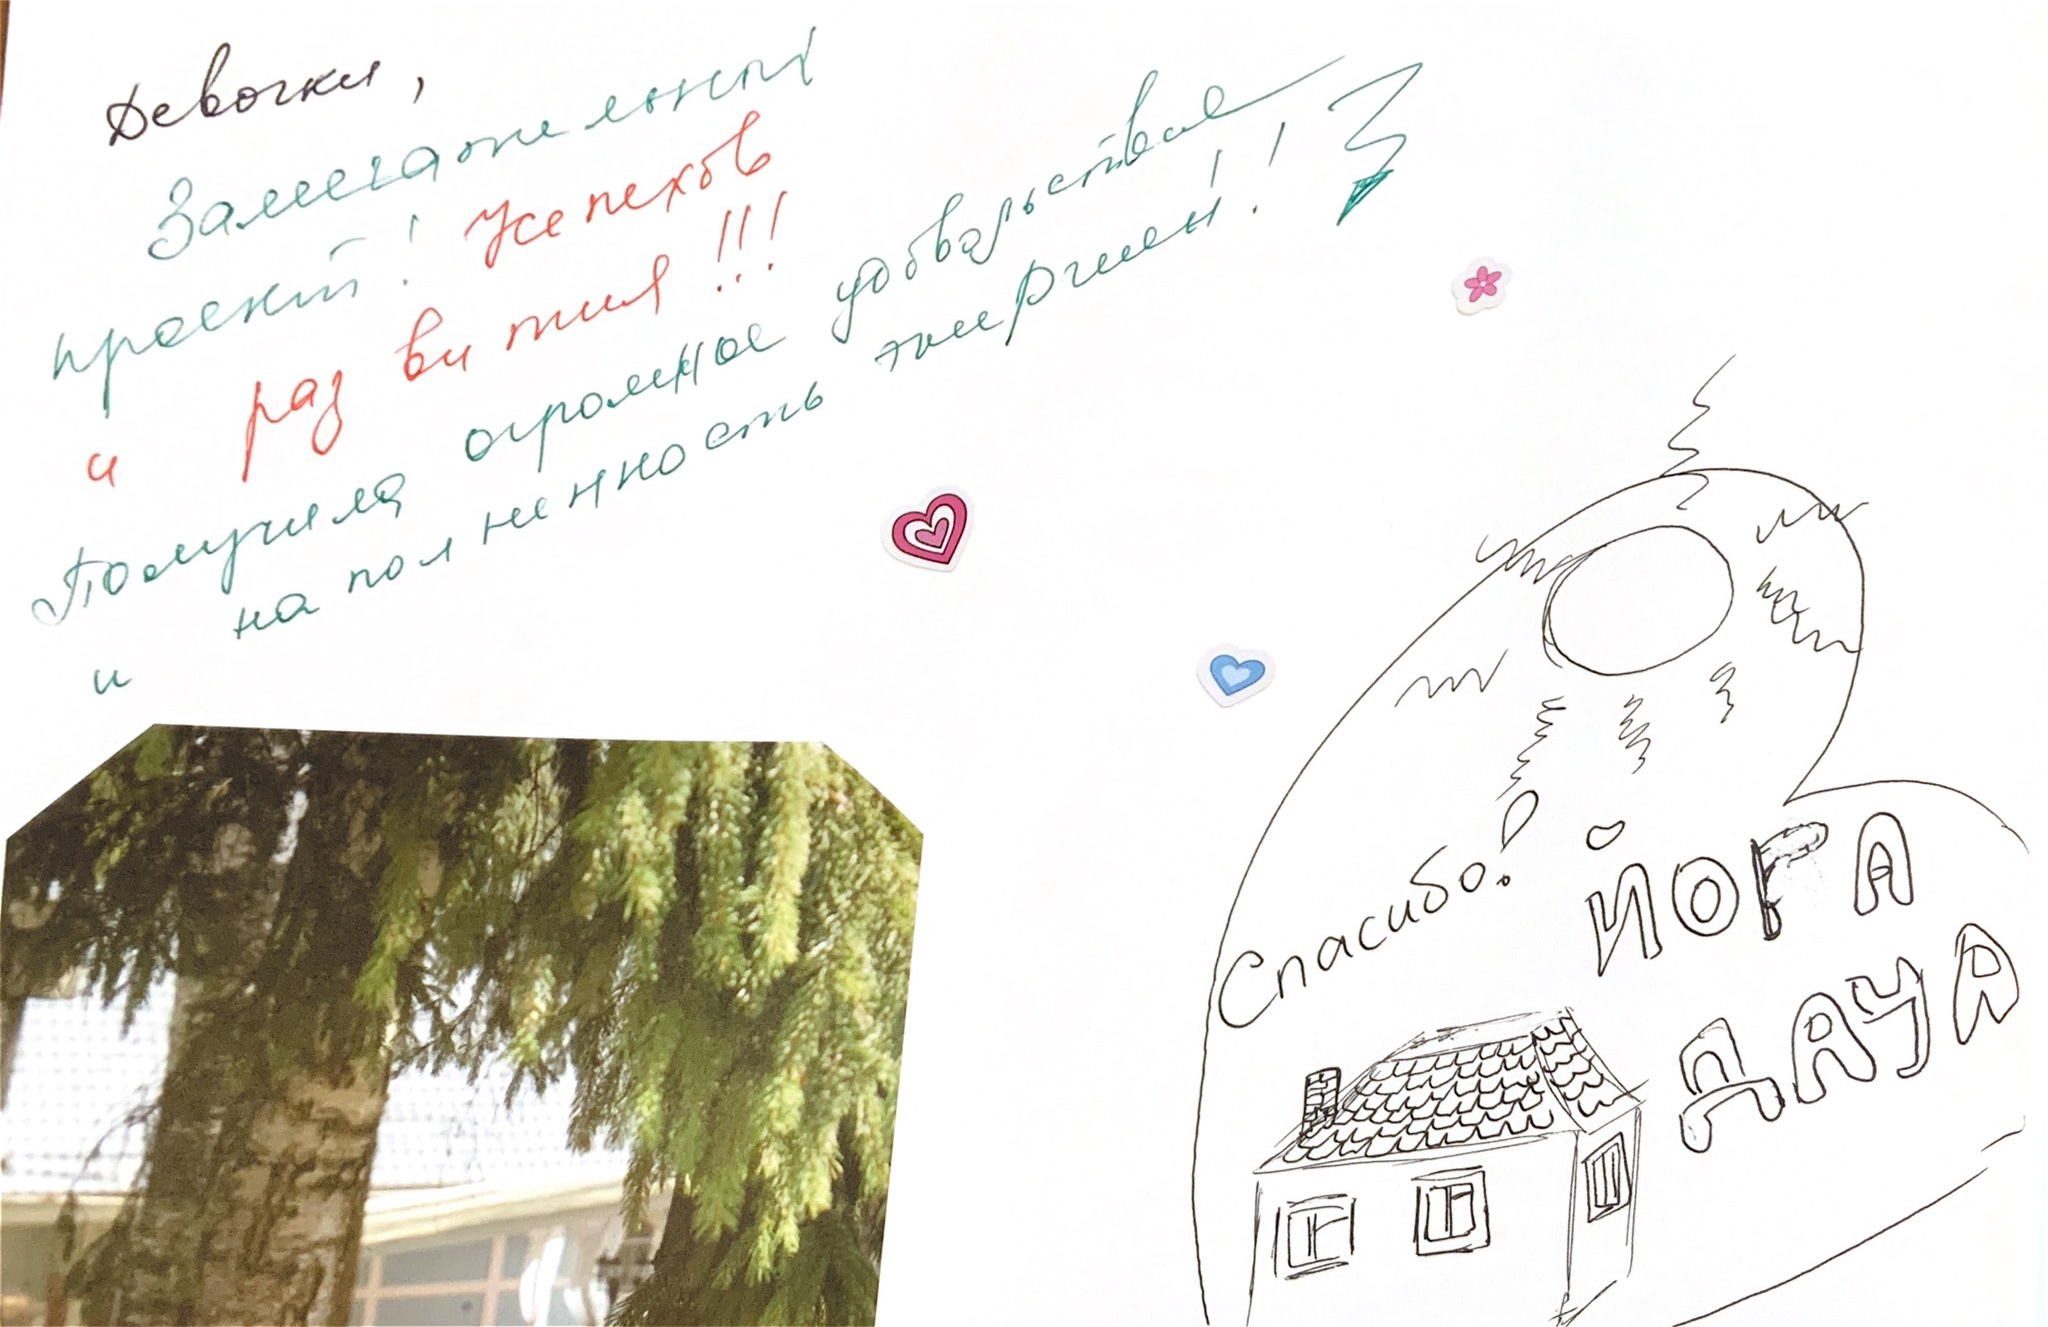 Девочки,
Замечательный
проект! Успехов
и развития!!!
Получила огромное удовольствие
и наполненность энергией!!
Спасибо!
ЙОГА
ДАЧА